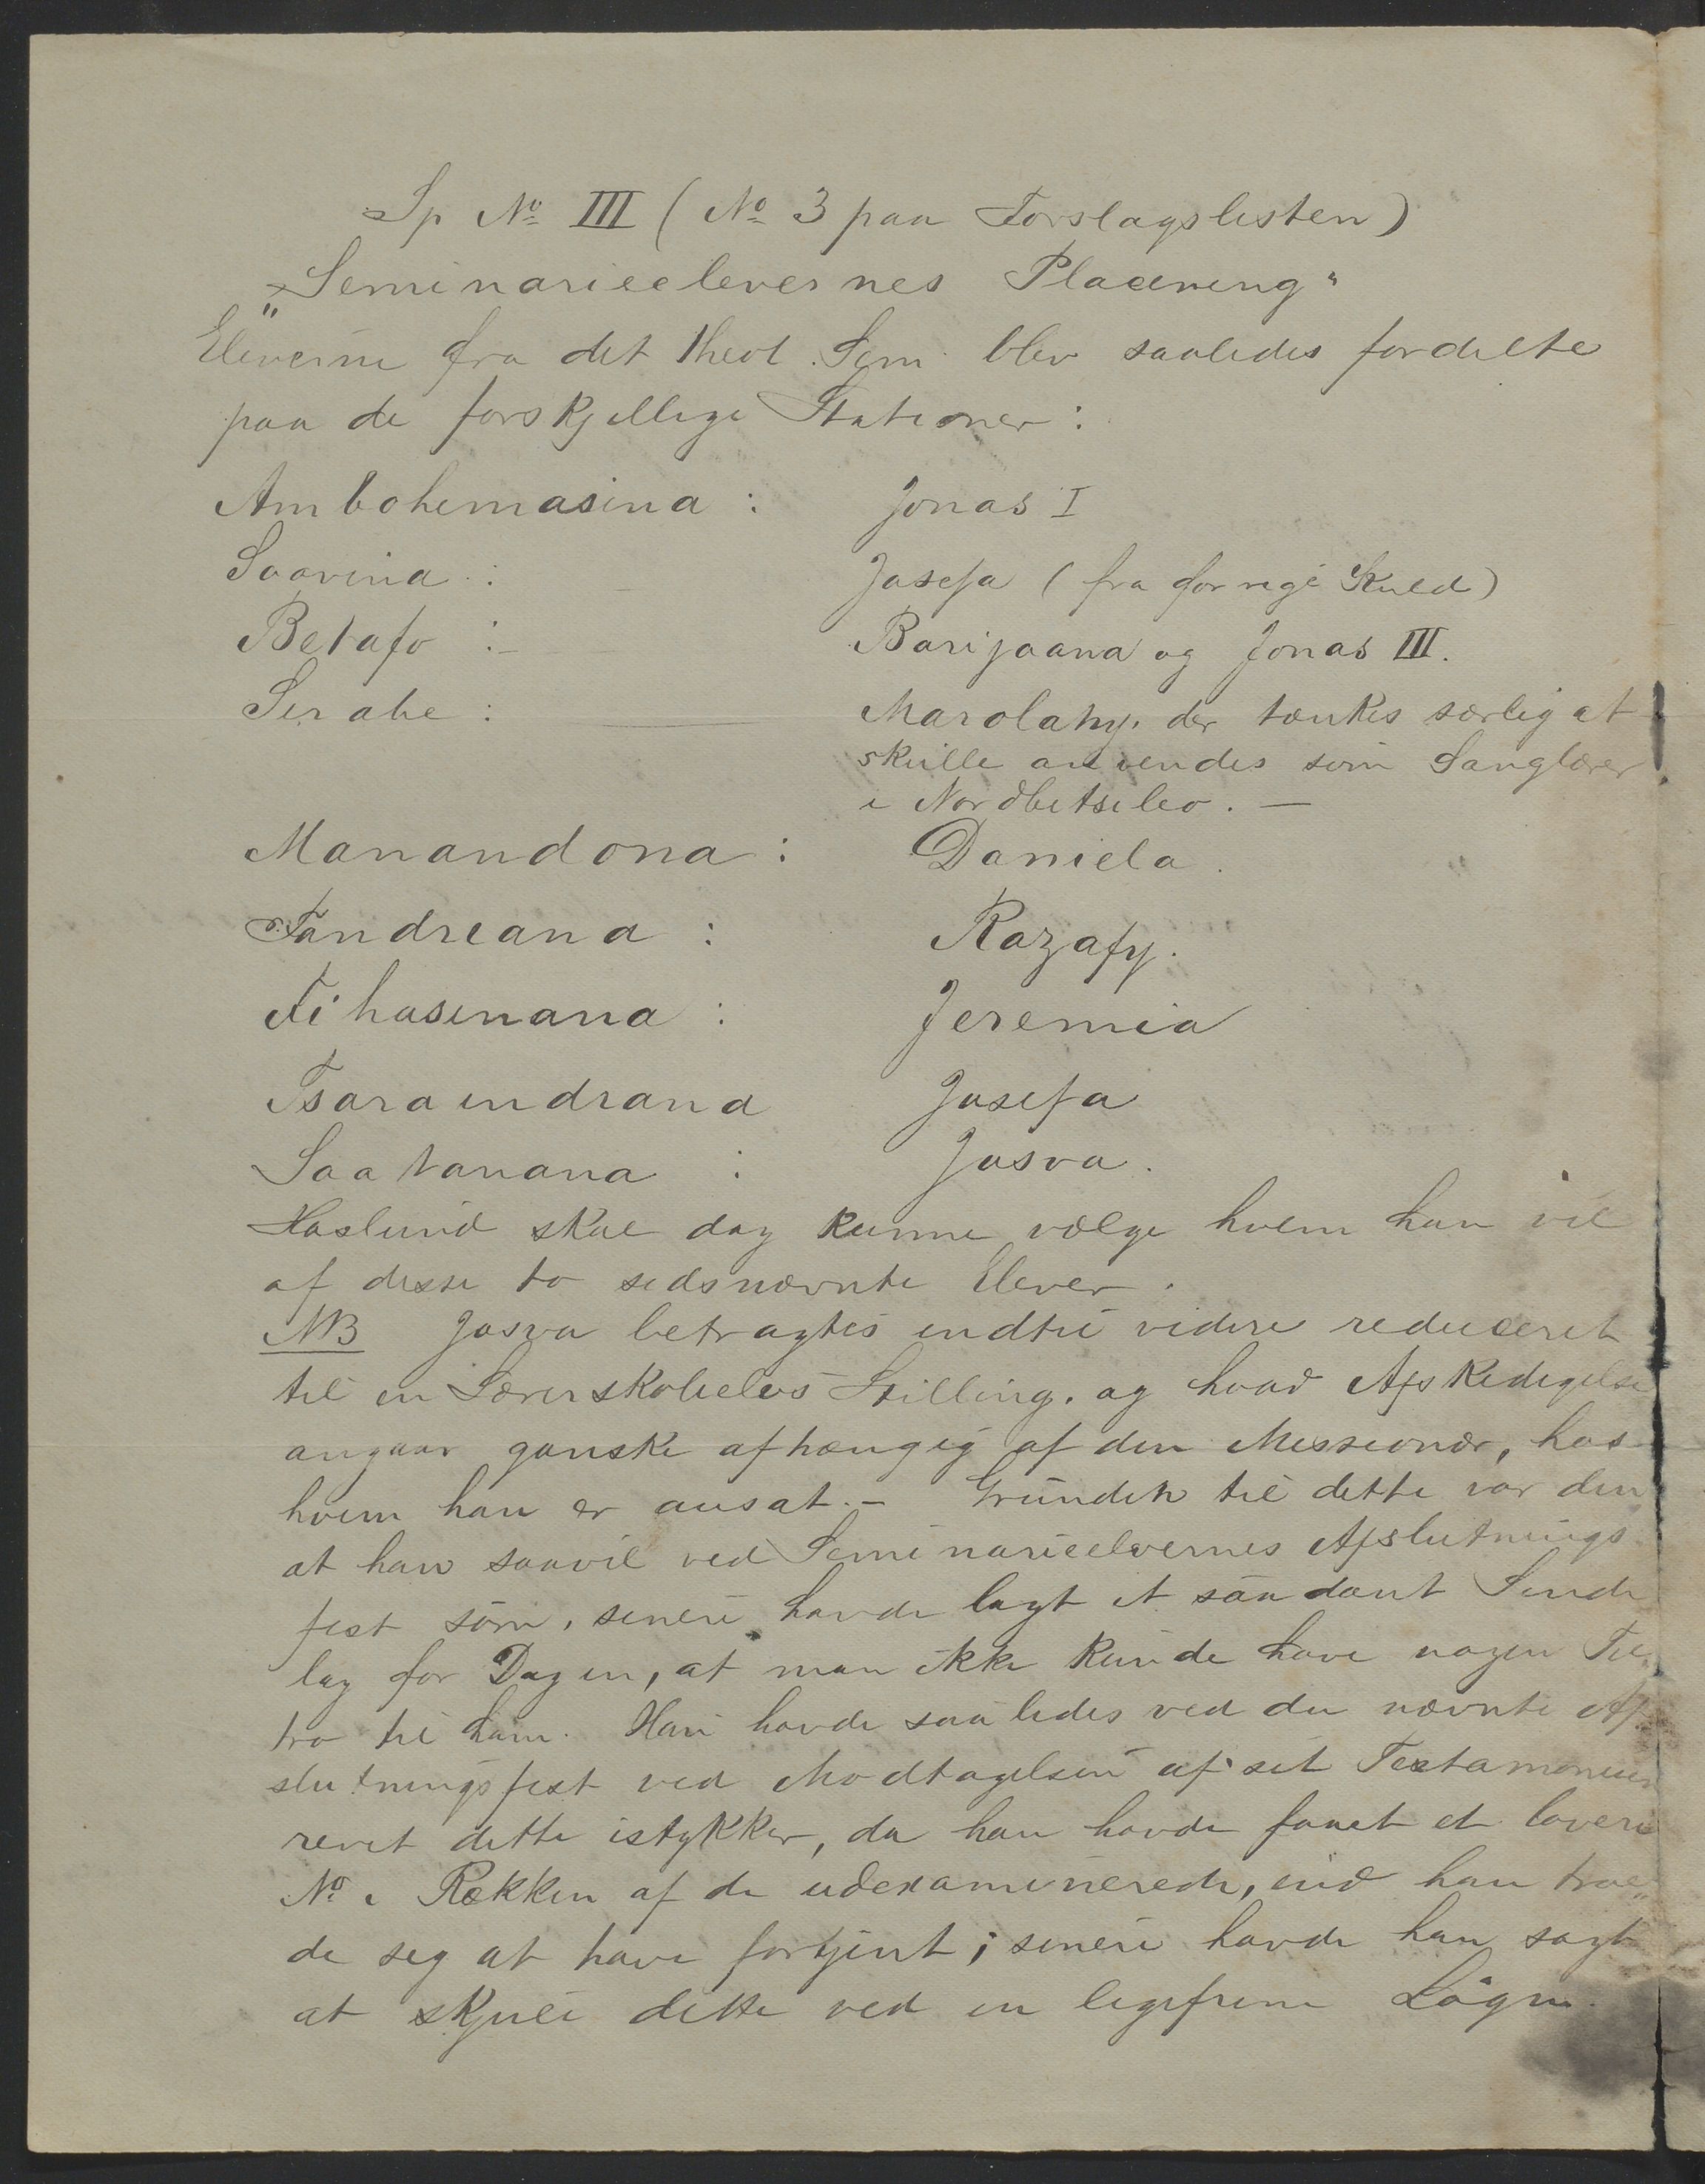 Sp No III (No 3 paa Forslagslisten)
"Seminarieelevernes Placering"
Eleverne fra det theol. Sem. blev saaledes fordelte
paa de forskjellige Stationer:
Ambohimasina: Jonas I
Soavina: Josefa (fra forrige Kuld)
Betafo: Barijaona og Jonas III.
Sirabe: Marolahy, der tænkes særlig at
skulle anvendes som Sanglærer
i Nordbetsileo. —
Manandona: Daniela.
Fandriana: Razafy.
Fihasinana: Jeremia
Tsaraindrana Josefa
Soatanana: Josva.
Haslund skal dog kunne vælge hvem han vil
af disse to sidsnævnte Elever.
NB Josva betragtes indtil videre reduceret
til en Lærerskoleelevs Stilling, og hvad Afskedigelse
angaar ganske afhængig af den Missionær, hos
hvem han er ansat. — Grunden til dette var den
at han saavel ved Seminarieelevernes Afslutnings
fest som senere havde lagt et saadant Sinde
lag for Dagen, at man ikke kunde have nogen Til
tro til ham. Han havde saaledes ved den nævnte Af
slutningsfest ved Modtagelsen af sit Testamonium
revet dette istykker, da han havde faaet et lavere
No i Rækken af de udexaminerede, end han troe
de sig at have fortjent; senere havde han søgt
at skjule dette ved en ligefrem Løgn.